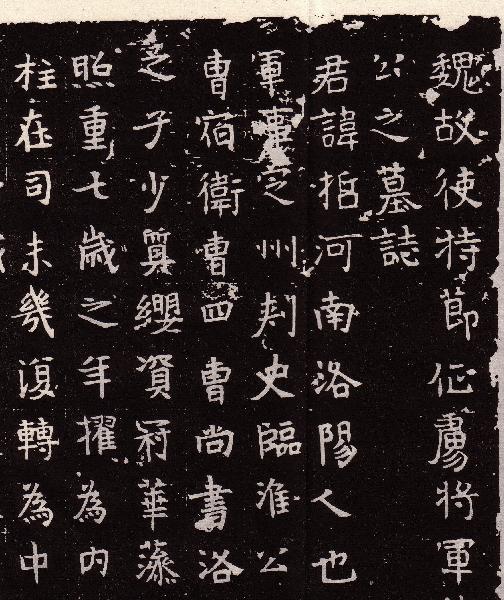 魏故使持節征虜將軍
公之墓誌
君諱括河南洛陽人也
軍事定州刺史臨淮公
曹宿衛曹四曹尚書洛
之子少冀纓資冠華藻
照重七歲之年擢為内
柱在司未幾復轉為中